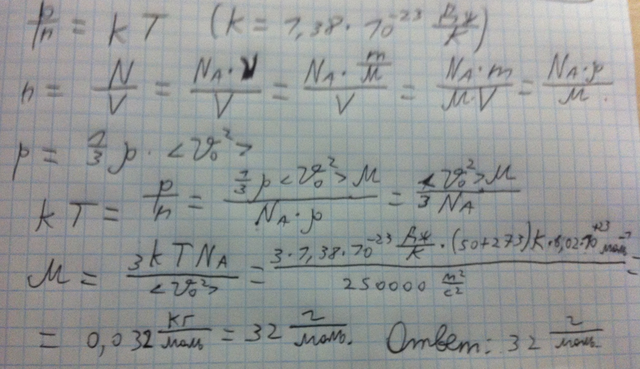 p/n = kT (k = 1,38·10^-23 Дж/К)
n = N/V = N_A·ν/V = N_A·m/M/V = N_A·m/M·V = N_A·ρ/M.
p = 1/3 ρ·<v₀²>
kT = p/n = 1/3 ρ<v₀²>M/N_A·ρ = <v₀²>M/3 N_A
M = 3kTN_A/<v₀²> = 3·1,38·10^-23 Дж/К·(50+273)К·6,02·10^+23 моль^-1/250000 м²/с² =
= 0,032 кг/моль = 32 г/моль. Ответ: 32 г/моль.